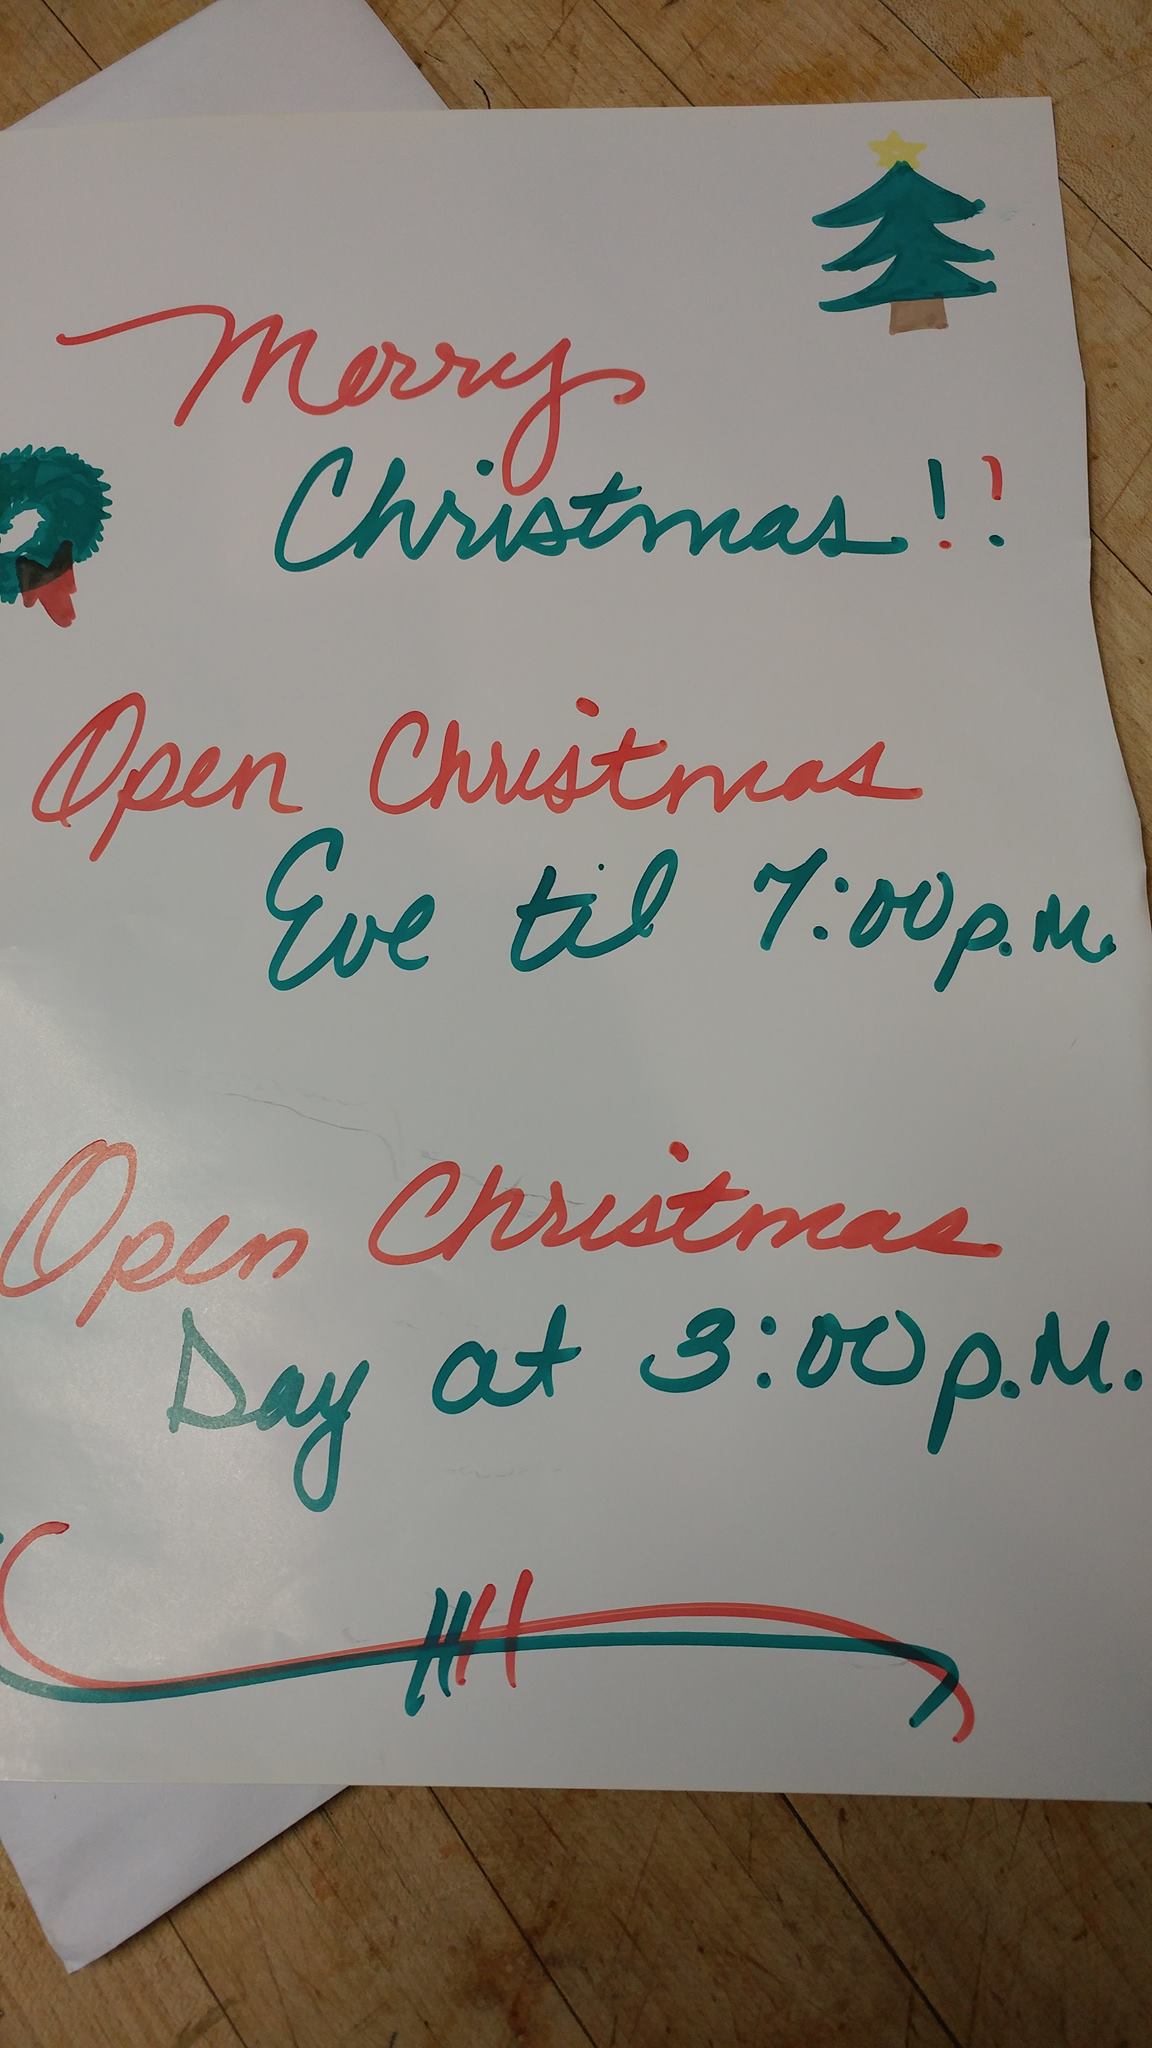 Merry
Christmas!!
Open Christmas
Eve til 7:00 p.M.
Open Christmas
Day at 3:00 p.M.